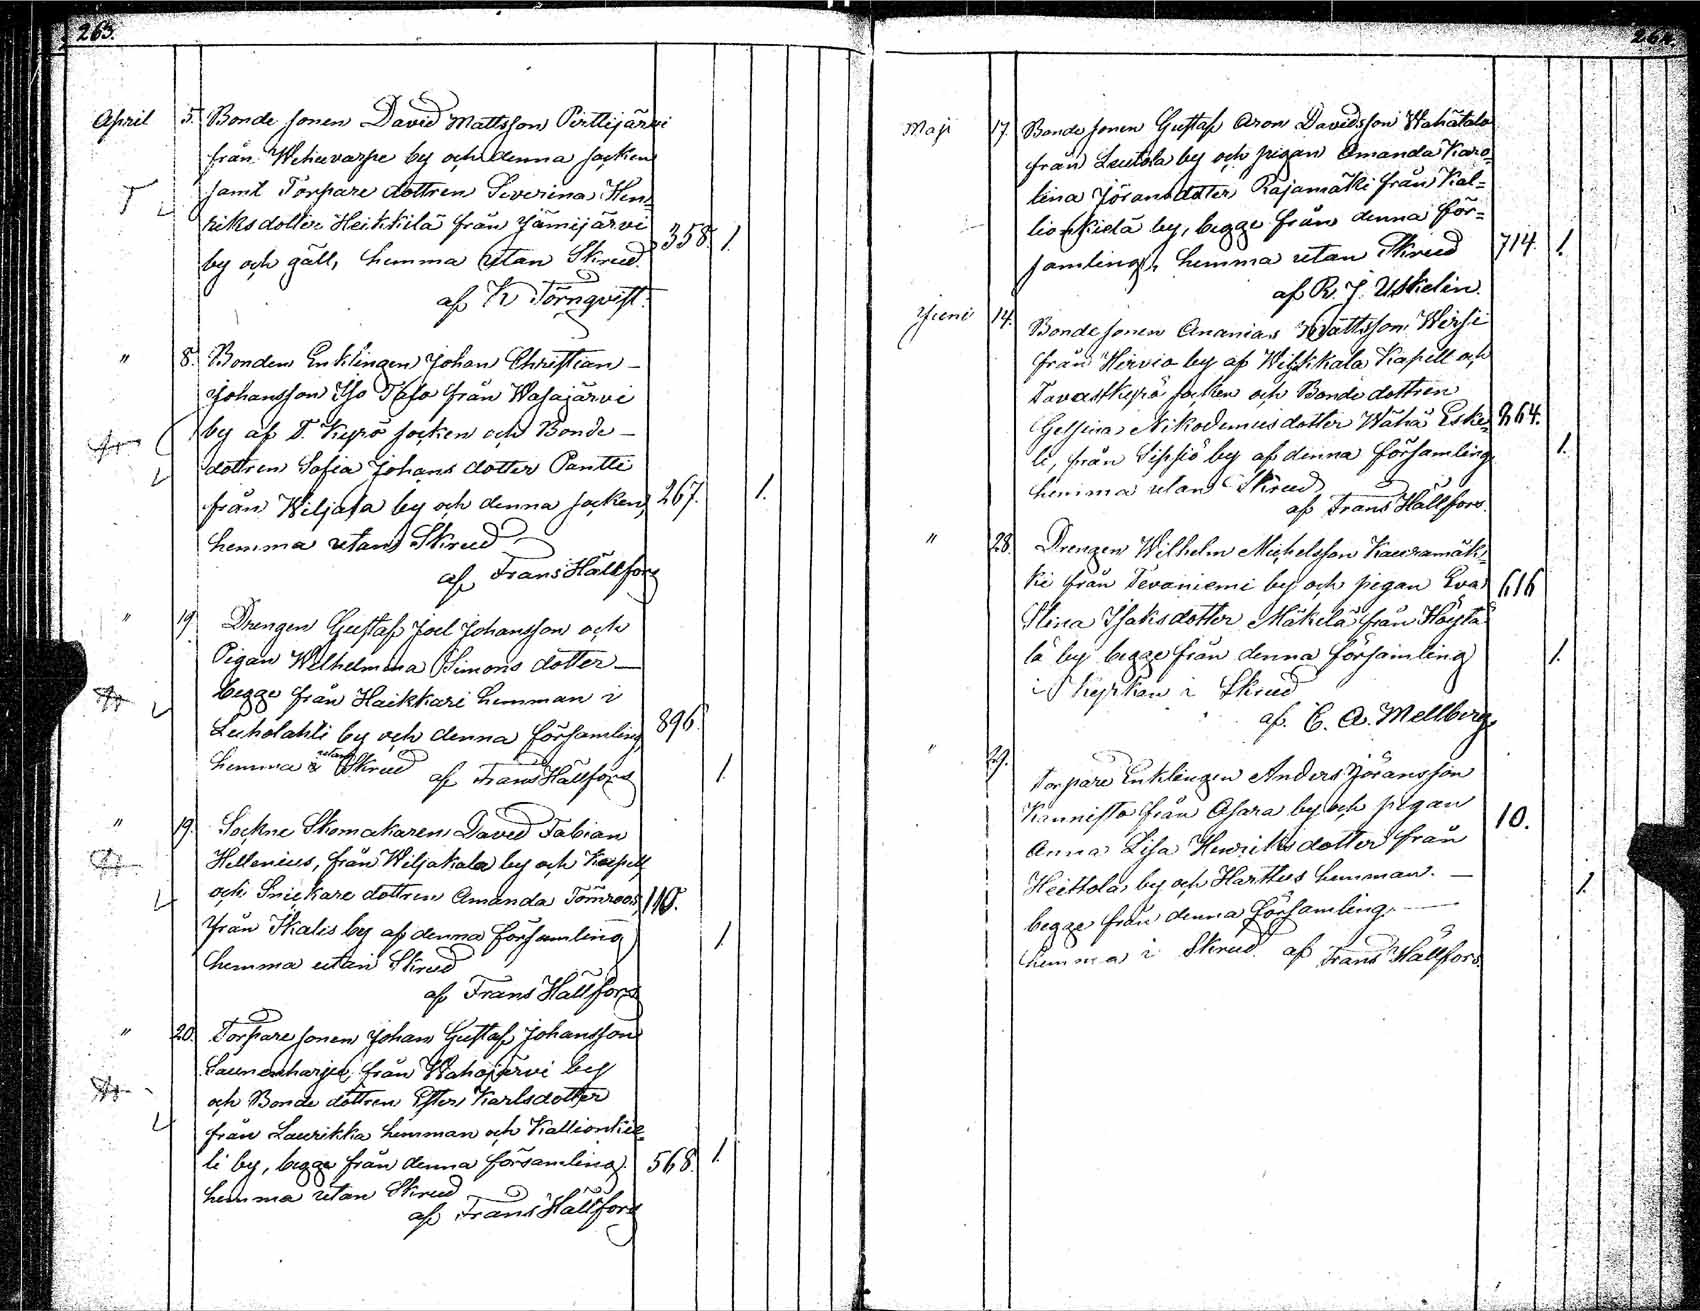 263.
April 5. Bonde sonen David Mattsson Pirttijärvi
från Wehuvarpe by och denna socken
samt Torpare dottren Severina Hen-
riksdotter Heikkilä från Jämijärvi
by och gäll, hemma utan Skrud. 358. 1.
af K Törnqvist.
" 8. Bonden Enklingen Johan Christian
Johansson Iso Tafo från Wasajärvi
by af T. Kyrö socken och Bonde
dottren Sofia Johans dotter Pantti
från Wiljala by och denna socken, 267. 1.
hemma utan Skrud
af Frans Hällfors
" 19 Drengen Gustaf Joel Johansson och
Pigan Wilhelmina Simons dotter
begge från Haikkari hemman i
Luhalahti by och denna församling 896.
hemma utan Skrud af Frans Hällfors 1.
" 19. Sockne Skomakaren David Fabian
Hellenius, från Wiljakala by och Kapell
och Snickare dottren Amanda Törnroos, 110.
från Ikalis by af denna församling 1.
hemma utan Skrud
af Frans Hällfors
" 20. Torpare sonen Johan Gustaf Johansson
Launenharju från Wahojärvi by
och Bonde dottren Ester Karlsdotter
från Laurikka hemman och Kallionkie-
li by, begge från denna församling. 568. 1.
hemma utan Skrud
af Frans Hällfors
264.
Maji 17. Bonde sonen Gustaf Aron Davidsson Wahätalo
från Leutola by och pigan Amanda Karo-
lina Jöransdotter Rajamäki från Kal-
lionkielä by, begge från denna för-
samling, hemma utan Skrud 714 1.
af R. J. Uskelin.
Juni 14. Bondesonen Ananias Mattsson Wirsi
från Hirvio by af Wiljakkala Kapell och
Tavastkyrö socken och Bonde dottren
Gelsina Nikodemusdotter Wähä Eske- 864.
li, från Sipsiö by af denna församling 1.
hemma utan Skrud
af Frans Hällfors.
" 28. Drengen Wilhelm Michelsson Kauramäk-
ki från Tevaniemi by och pigan Eva 616
Stina Isaksdotter Mäkelä från Höytö
lä by begge från denna församling 1.
i Kyrkan i Skrud
af. C. A. Mellberg
" 29. Torpare Enklingen Anders Jöransson
Kannisto från Osara by och pigan 10.
Anna Lisa Henriksdotter från
Heittola by och Harttus hemman. 1.
begge från denna församling.
hemma i Skrud. af Frans Hällfors.